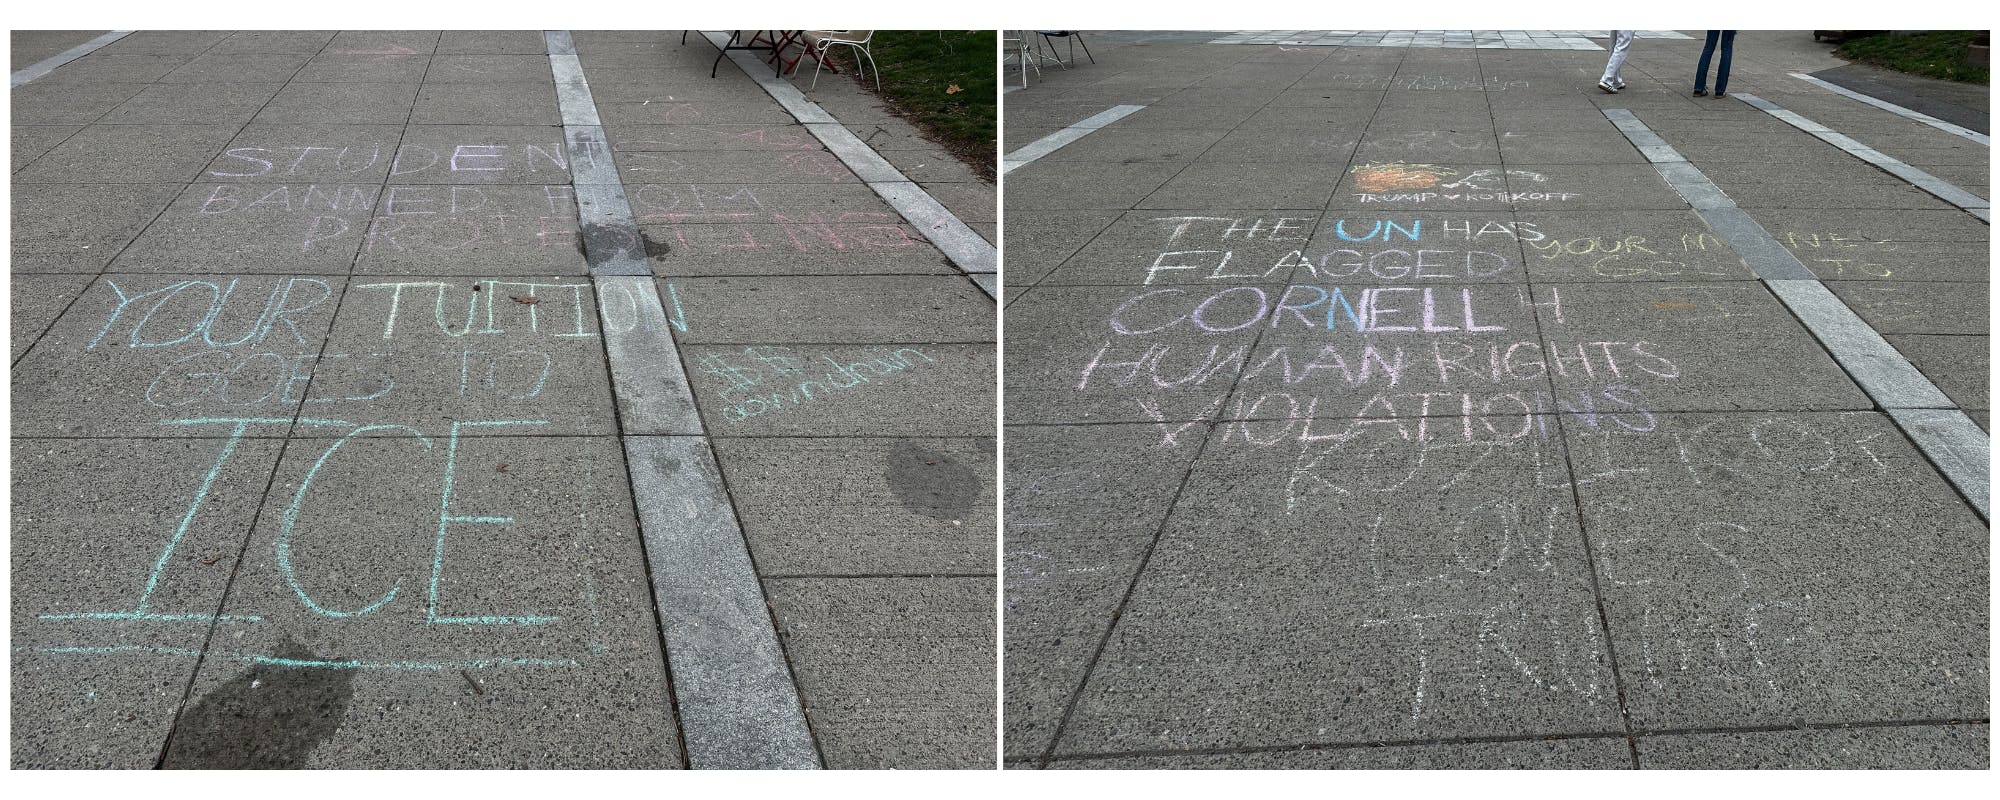 STUDENTS
BANNED FROM
PROTESTING
YOUR TUITION
GOES TO
ICE
$$
downchain
TRUMP ♥ KOTLIKOFF
THE UN HAS
FLAGGED
CORNELL 4
HUMAN RIGHTS
VIOLATIONS
YOUR MONEY
GOES TO
KOTLIKOFF
LOVES
TRUMP